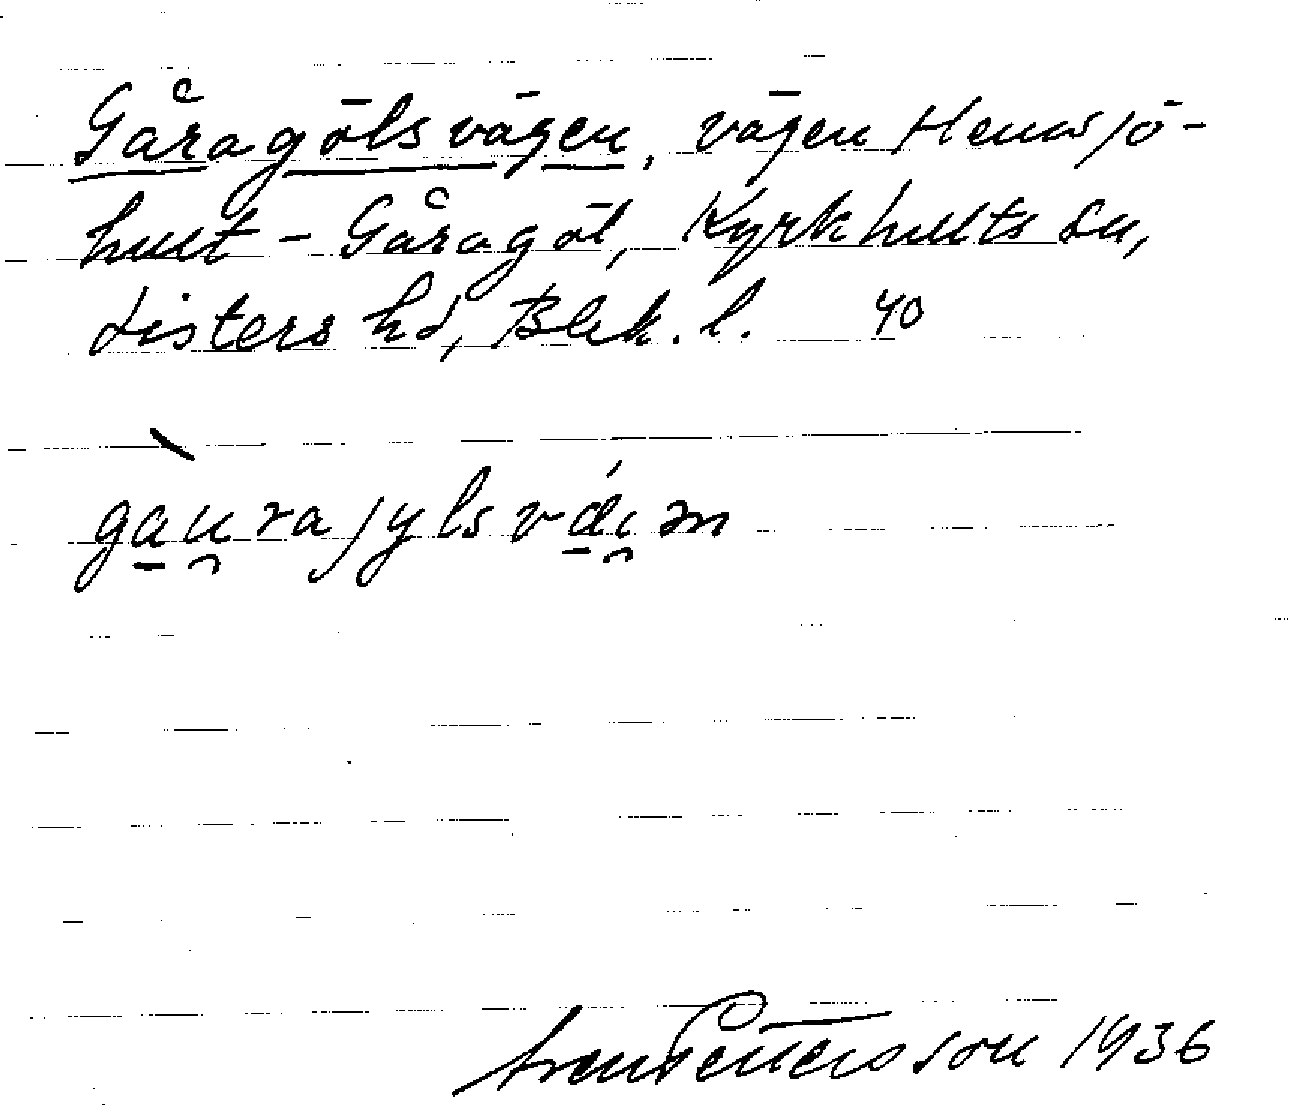 Gåragölsvägen, vägen Hemsjö-
hult - Gåragöl, Kyrkhults sn,
Listers hd, Blek. l. 40
gau̯rajylsvä́i̯ən
Pettersson 1936